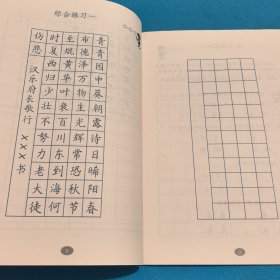 综合练习一
青青园中葵朝露待日晞阳春
布德泽万物生光辉常恐秋节
至焜黄华叶衰百川东到海何
时复西归少壮不努力老大徒
伤悲 汉乐府长歌行 XXX书